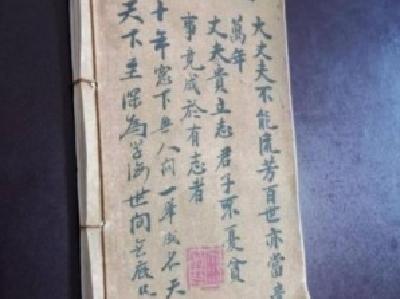 大丈夫不能流芳百世亦當
萬年
丈夫貴立志君子不憂貧
事竟成於有志者
十年窓下無人问一舉成名天
天下主深為学海世间